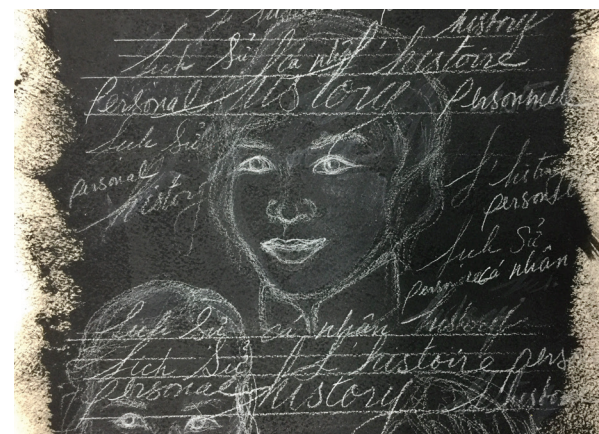 history
Lịch Sử cá nhân l'histoire
Personal history Personnel
Lịch Sử
personal
history
personal
Lịch Sử
personnel cá nhân
Lịch Sử cá nhân history
Lịch Sử l'histoire perso
personal history l'histoi